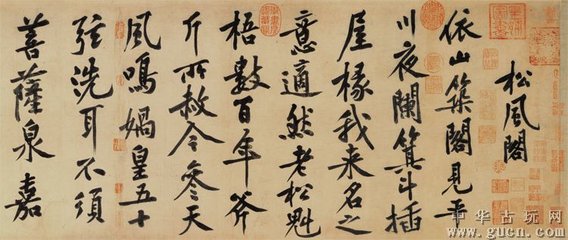 松風閣
依山築閣見平
川夜闌箕斗插
屋椽我來名之
意適然老松魁
梧數百年斧
斤所赦今參天
風鳴媧皇五十
弦洗耳不須
菩薩泉嘉
中华古玩网
www.gucn.com